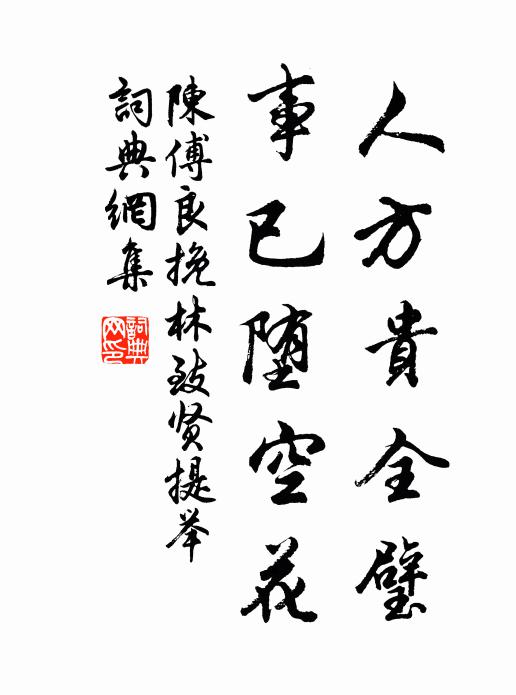 人方貴全璧
事已堕空花
陳傅良挽林致贤提举
詞典網集
詞典网印